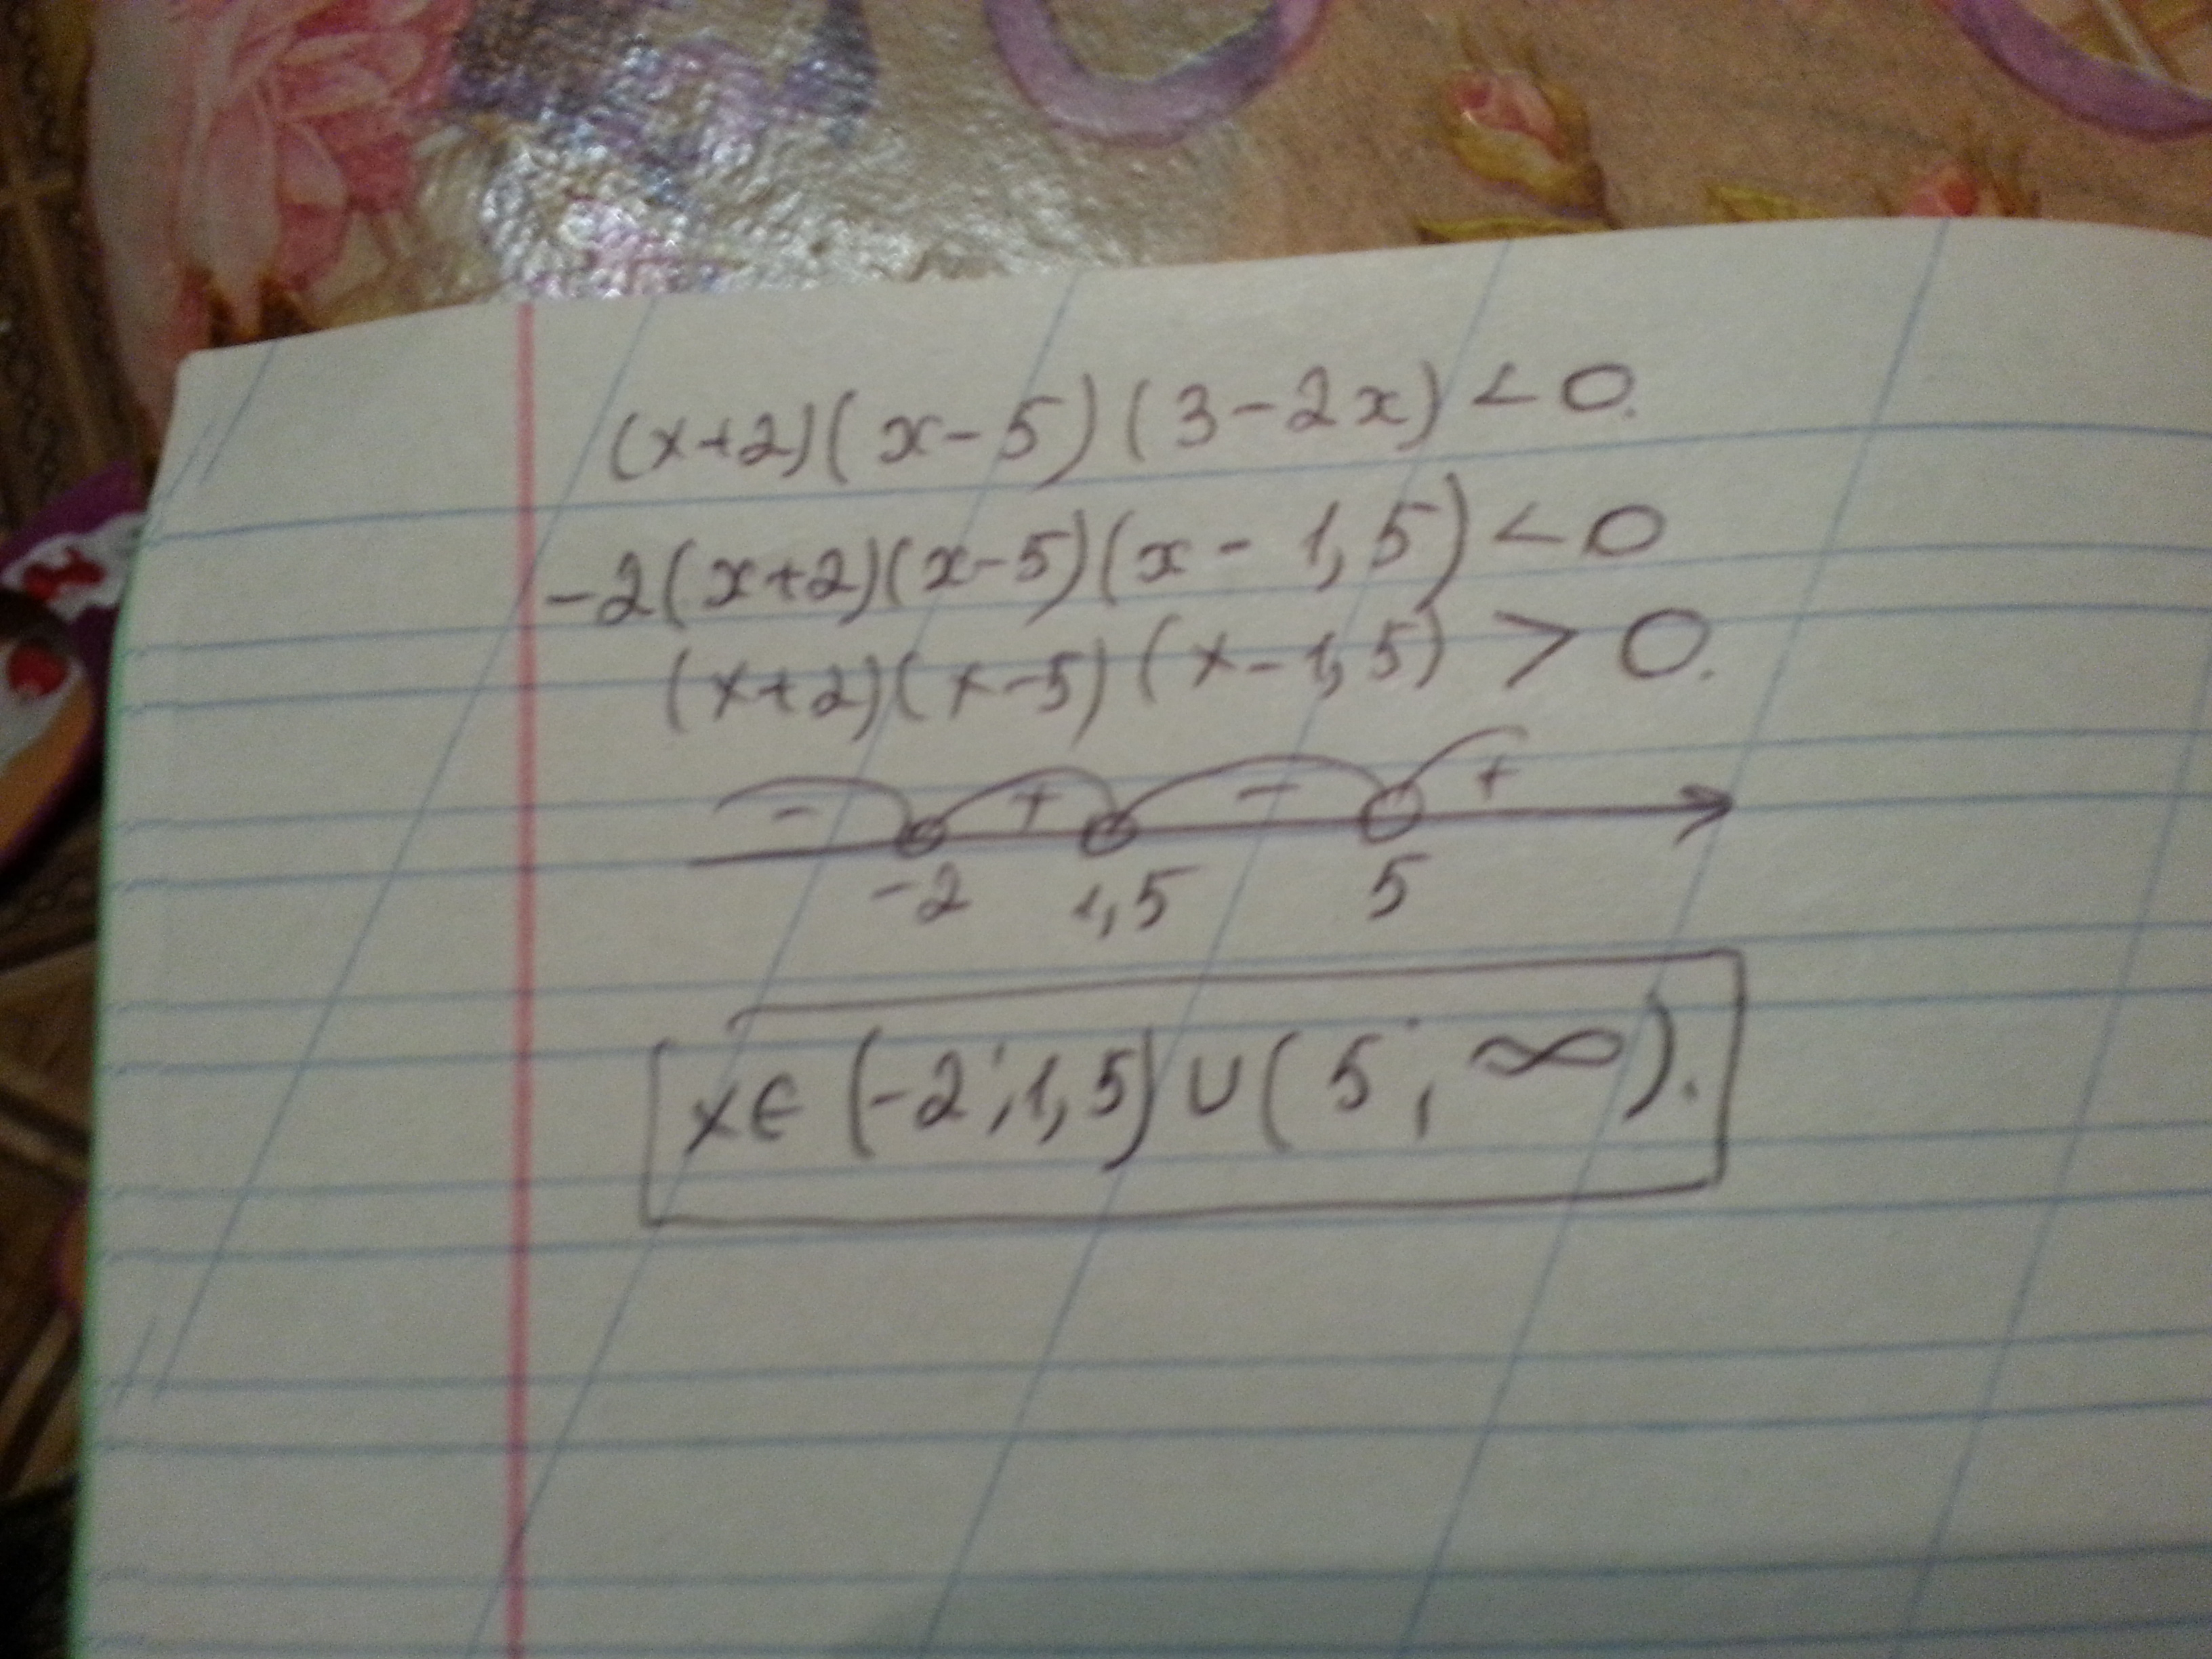 (x+2)(x-5)(3-2x)<0.
-2(x+2)(x-5)(x-1,5)<0
(x+2)(x-5)(x-1,5)>0.
- + - +
-2 1,5 5
x∈(-2;1,5)∪(5;∞).